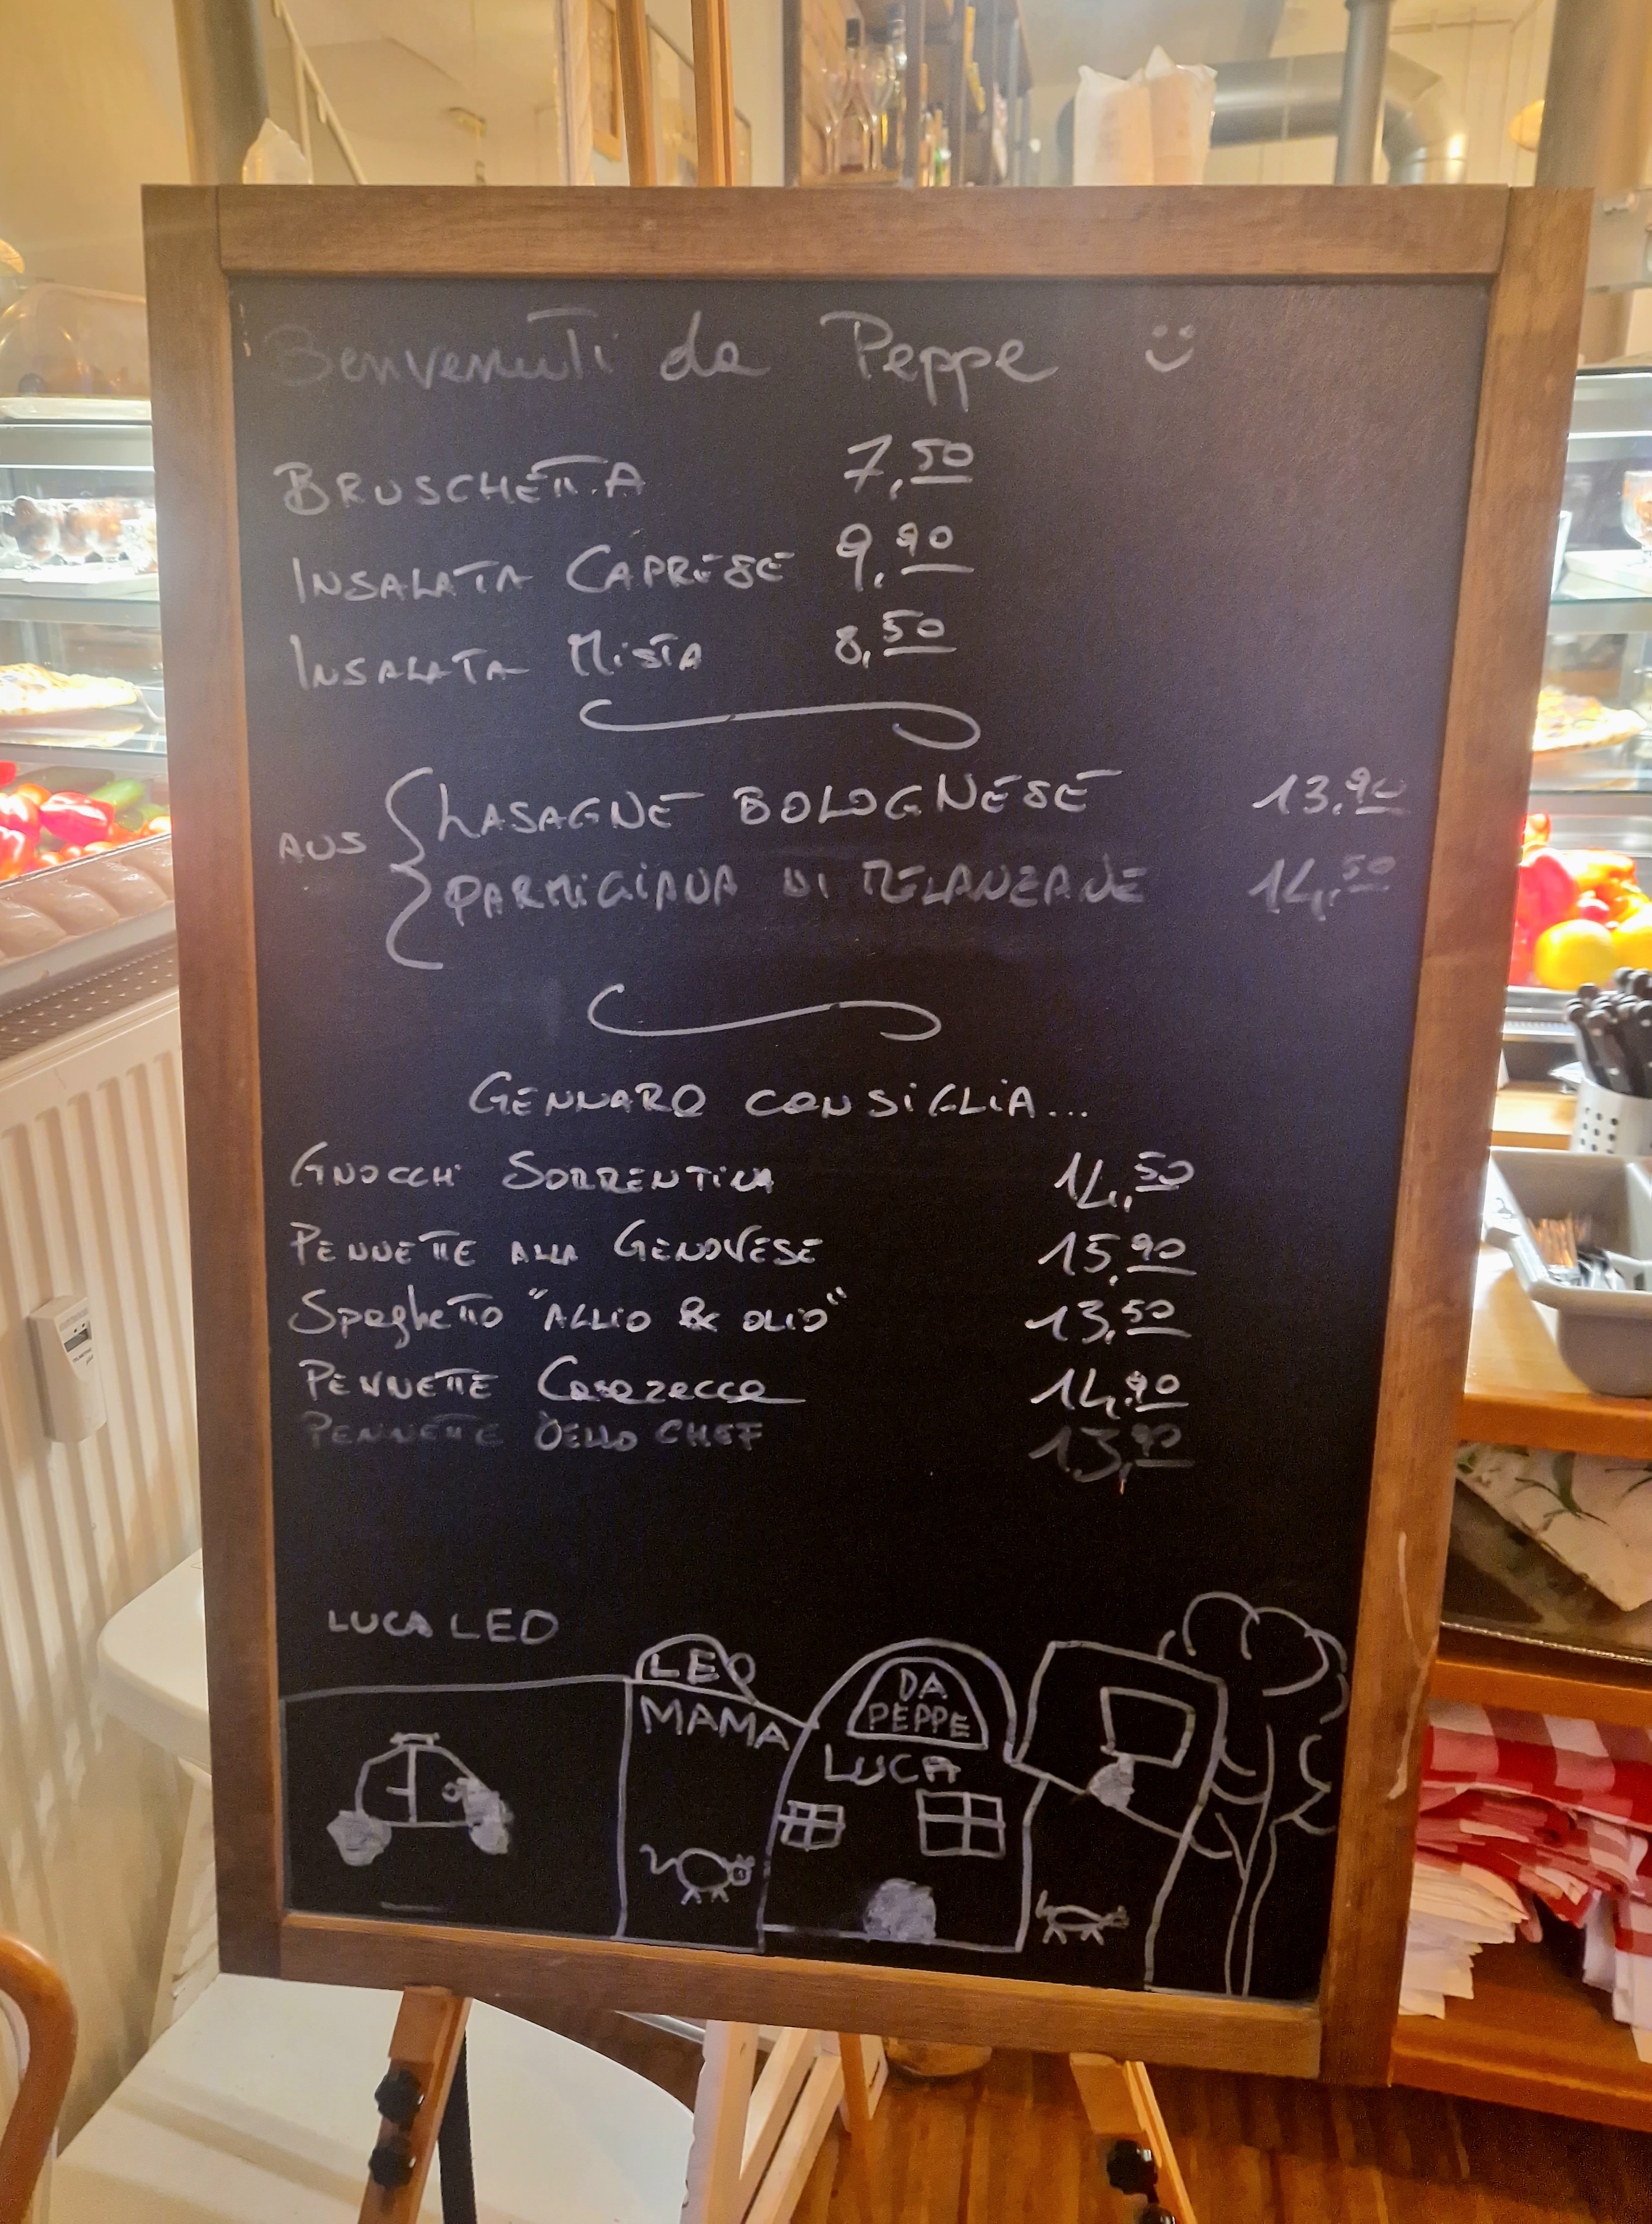 Benvenuti da Peppe
BRUSCHETTA 7,50
INSALATA CAPRESE 9,90
INSALATA MISTA 8,50
AUS
LASAGNE BOLOGNESE 13,90
PARMIGIANA DI MELANZANE 14,50
GENNARO CONSIGLIA...
GNOCCHI SORRENTINA 14,50
PENNETTE ALLA GENOVESE 15,90
Spaghetto "AGLIO & OLIO" 13,50
PENNETTE Casarecce 14,90
PENNETTE DELLO CHEF 13,90
LUCA LEO
LEO
MAMA
DA
PEPPE
LUCA